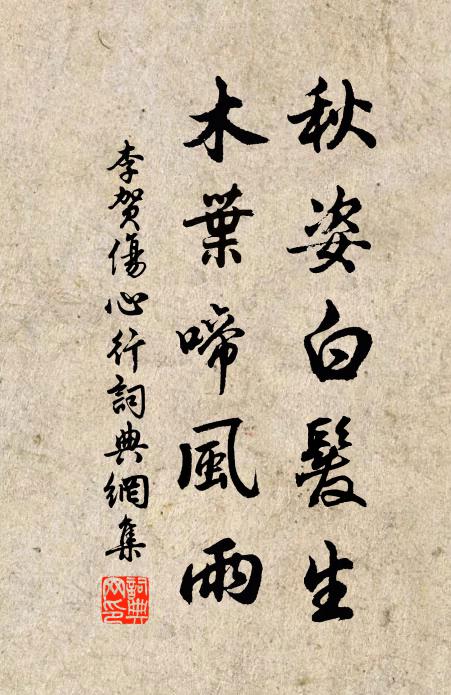 秋姿白髮生
木葉啼風雨
李賀傷心行詞典網集
詞典網印